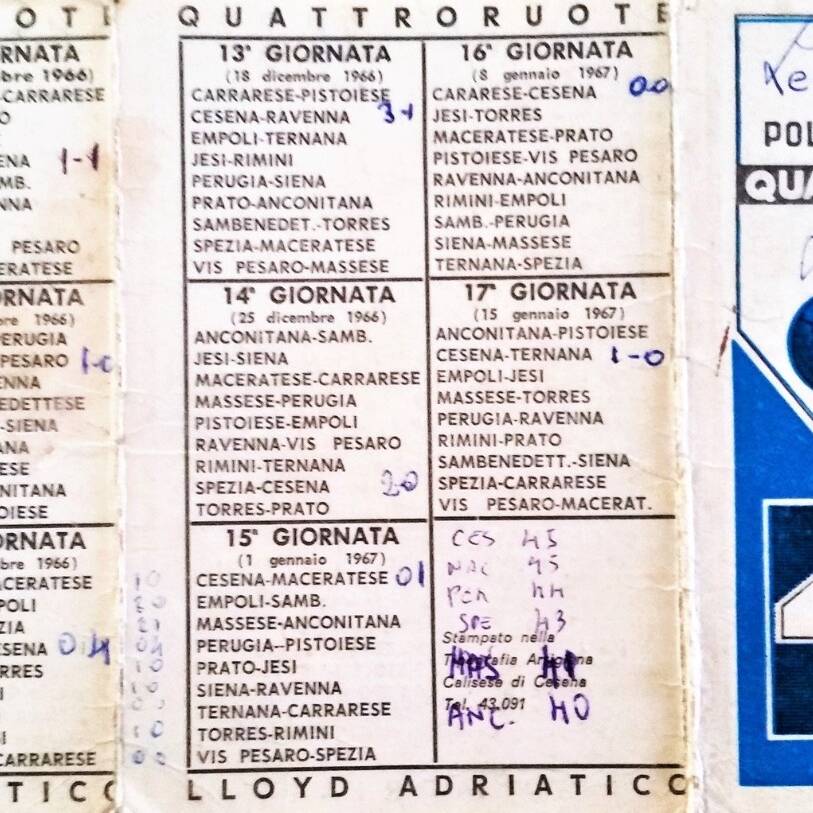 OTE
QUATTRORUOTE
RNATA
bre 1966)
-CARRARESE
O
ENA 1-1
MB.
NNA
PESARO
ERATESE
ORNATA
bre 1966)
PERUGIA
PESARO 1-0
ENNA
EDETTESE
-SIENA
ANA
ESE
NITANA
OIESE
ORNATA
bre 1966)
ACERATESE
POLI
ZIA
ESENA 0-4
RRES
I
SI
CARRARESE
TICO
13ª GIORNATA
(18 dicembre 1966)
CARRARESE-PISTOIESE
CESENA-RAVENNA 3-1
EMPOLI-TERNANA
JESI-RIMINI
PERUGIA-SIENA
PRATO-ANCONITANA
SAMBENEDET.-TORRES
SPEZIA-MACERATESE
VIS PESARO-MASSESE
14ª GIORNATA
(25 dicembre 1966)
ANCONITANA-SAMB.
JESI-SIENA
MACERATESE-CARRARESE
MASSESE-PERUGIA
PISTOIESE-EMPOLI
RAVENNA-VIS PESARO
RIMINI-TERNANA
SPEZIA-CESENA 20
TORRES-PRATO
15ª GIORNATA
(1 gennaio 1967)
10 CESENA-MACERATESE 01
20 EMPOLI-SAMB.
21 MASSESE-ANCONITANA
04 PERUGIA--PISTOIESE
10 PRATO-JESI
10 SIENA-RAVENNA
00 TERNANA-CARRARESE
10 TORRES-RIMINI
00 VIS PESARO-SPEZIA
16ª GIORNATA
(8 gennaio 1967)
CARARESE-CESENA 00
JESI-TORRES
MACERATESE-PRATO
PISTOIESE-VIS PESARO
RAVENNA-ANCONITANA
RIMINI-EMPOLI
SAMB.-PERUGIA
SIENA-MASSESE
TERNANA-SPEZIA
17ª GIORNATA
(15 gennaio 1967)
ANCONITANA-PISTOIESE
CESENA-TERNANA 1-0
EMPOLI-JESI
MASSESE-TORRES
PERUGIA-RAVENNA
RIMINI-PRATO
SAMBENEDETT.-SIENA
SPEZIA-CARRARESE
VIS PESARO-MACERAT.
CES 45
MAC 45
PER 44
SPE 43
Stampato nella
Tipografia Artigiana
MAS 41
Calisese di Cesena
Tel. 43.091
ANC. 40
LLOYD ADRIATICO
POL
QUA